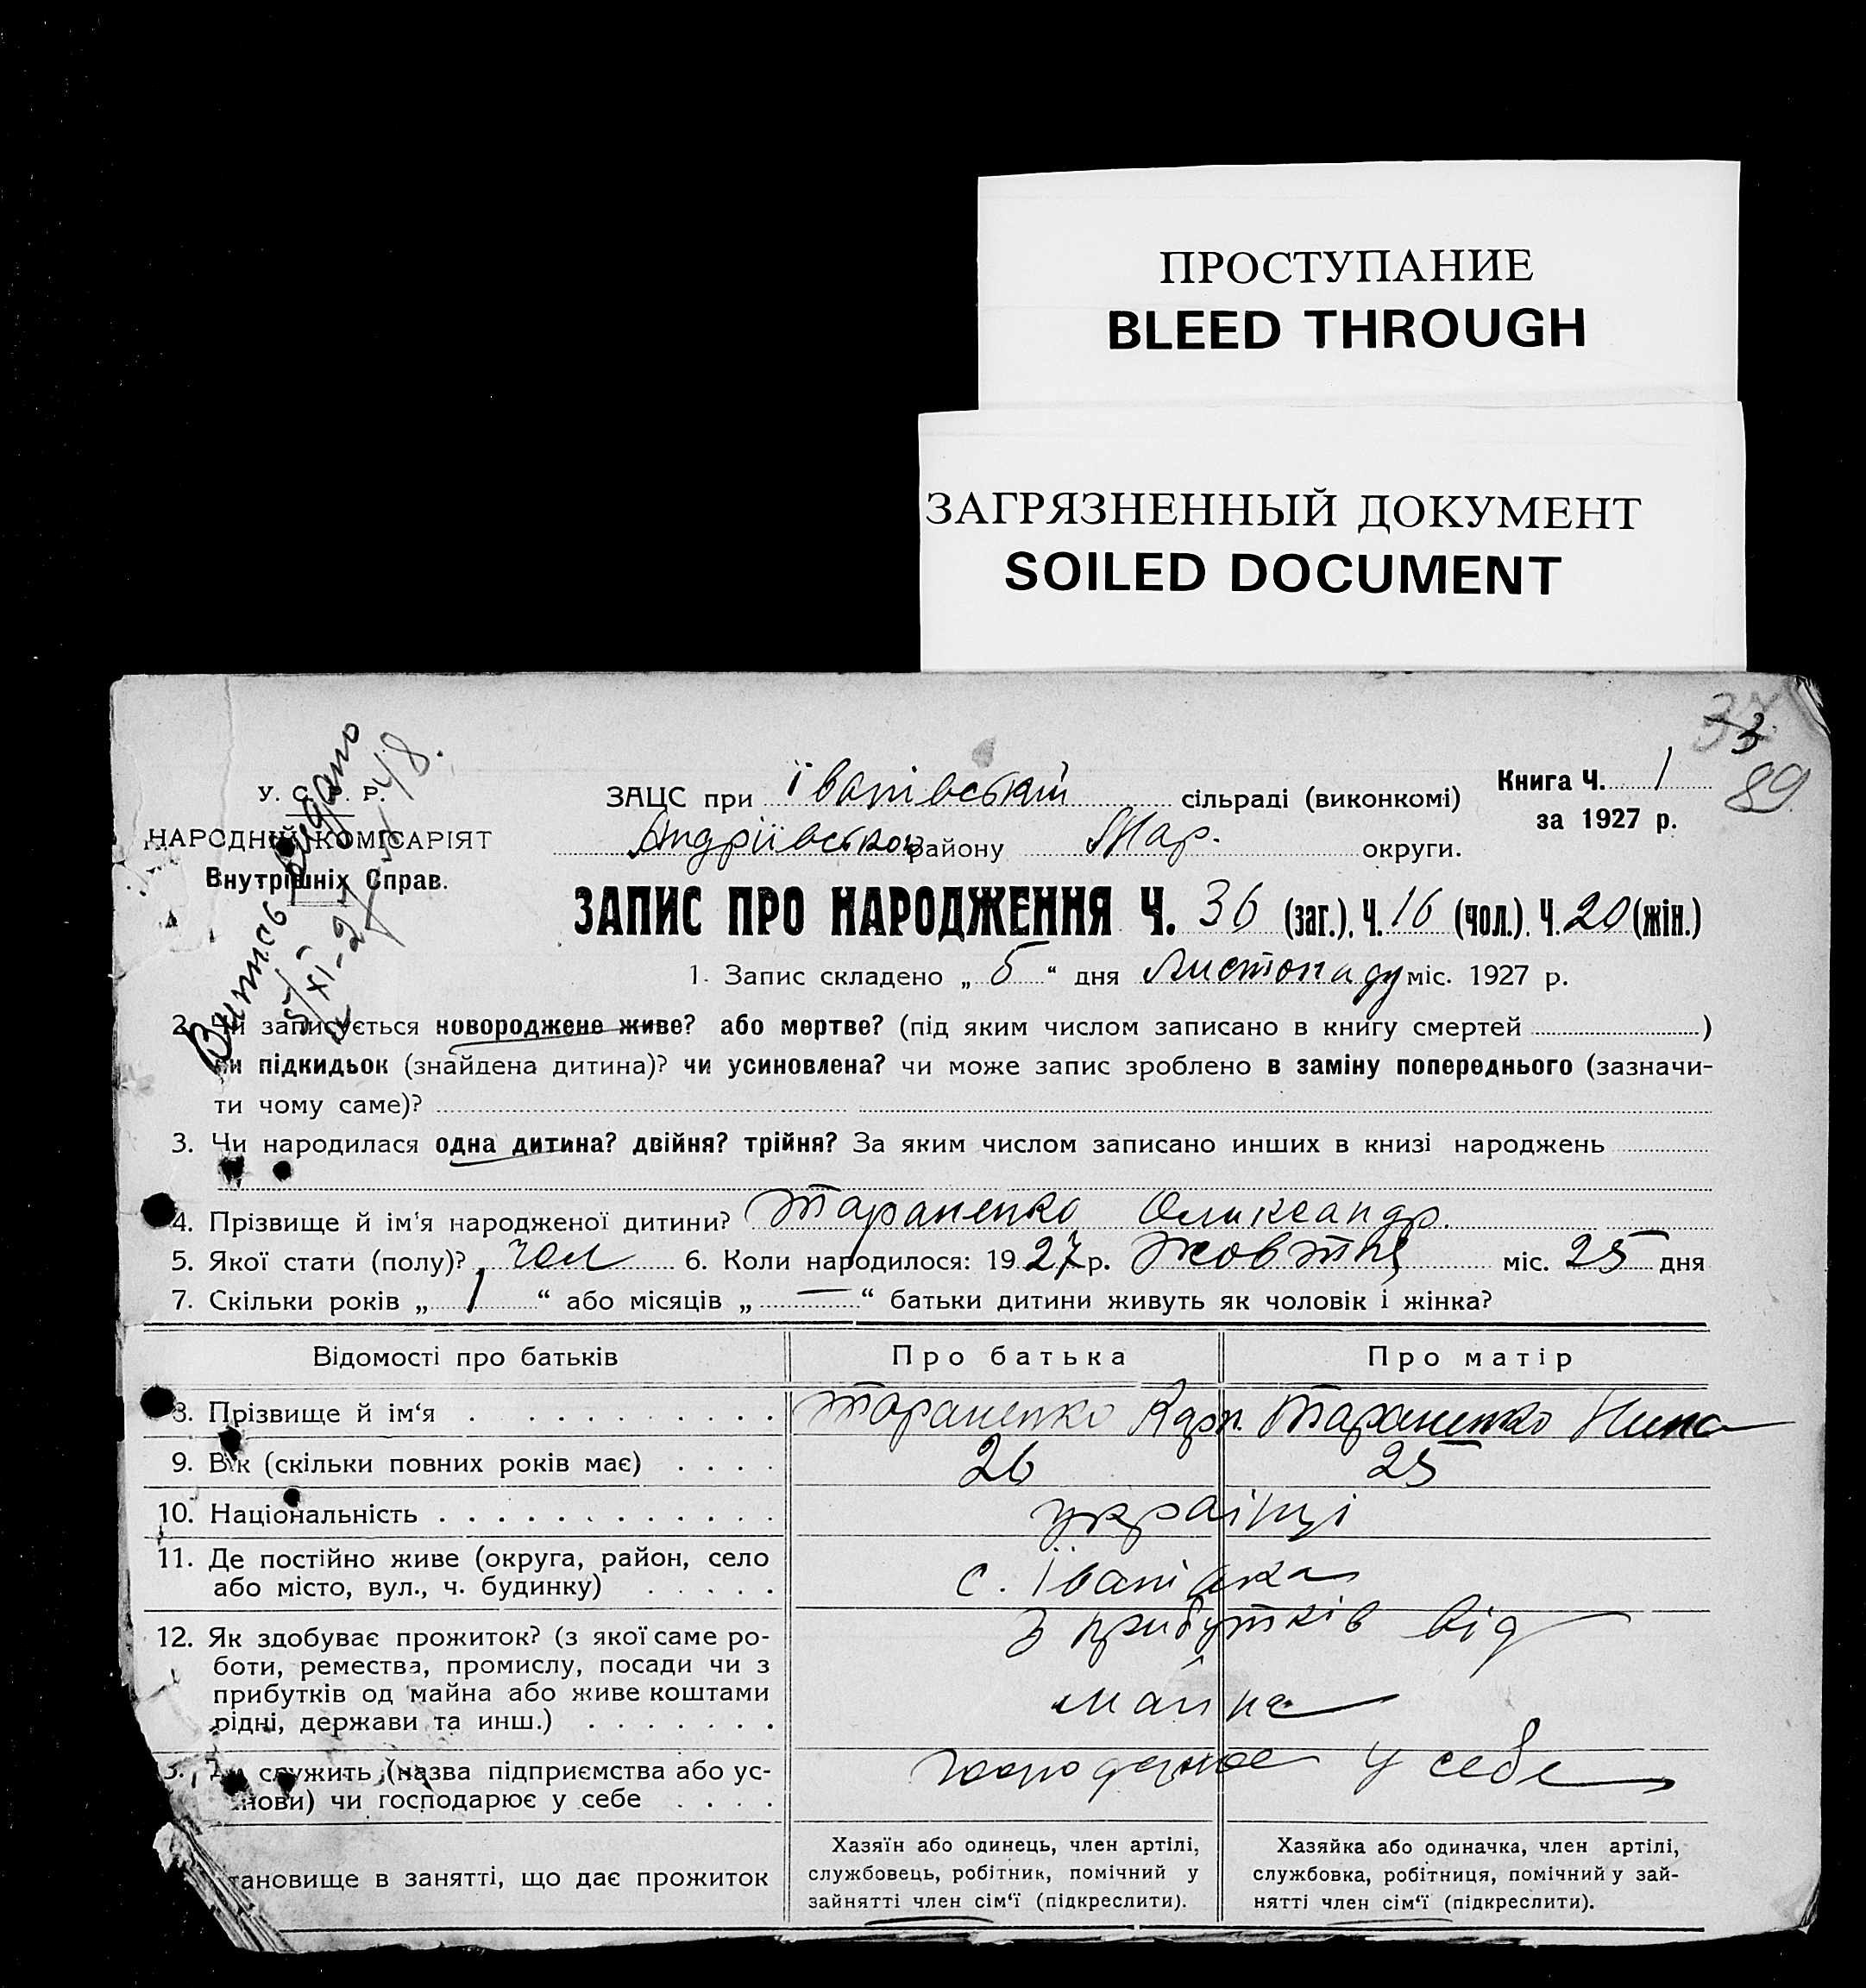 ПРОСТУПАНИЕ
BLEED THROUGH
ЗАГРЯЗНЕННЫЙ ДОКУМЕНТ
SOILED DOCUMENT
3
89
У. С. Р. Р.
НАРОДНІЙ КОМІСАРІЯТ
Внутрішніх Справ.
Витись видано
5/XI-27
ЗАЦС при Іванівській сільраді (виконкомі)
Книга Ч. 1
за 1927 р.
Андріївськог району Мар. округи.
ЗАПИС ПРО НАРОДЖЕННЯ Ч. 36 (заг.). Ч. 16 (чол.). Ч. 20 (жін.)
1. Запис складено „ 5 “ дня Листопаду міс. 1927 р.
2. Чи записується новороджене живе? або мертве? (під яким числом записано в книгу смертей )
чи підкидьок (знайдена дитина)? чи усиновлена? чи може запис зроблено в заміну попереднього (зазначи-
ти чому саме)?
3. Чи народилася одна дитина? двійня? трійня? За яким числом записано инших в книзі народжень
4. Прізвище й ім'я народженої дитини? Тараненко Олександр.
5. Якої стати (полу)? чол 6. Коли народилося: 1927 р. Жовтня міс. 25 дня
7. Скільки років „ 1 “ або місяців „ — “ батьки дитини живуть як чоловік і жінка?
Відомості про батьків Про батька Про матір
8. Прізвище й ім'я Тараненко Карп. Тараненко Нина
9. Вік (скільки повних років має) 26 25
10. Національність українці
11. Де постійно живе (округа, район, село
або місто, вул., ч. будинку) с. Іванівка
12. Як здобуває прожиток? (з якої саме ро-
боти, ремества, промислу, посади чи з
прибутків од майна або живе коштами
рідні, держави та инш.)
З прибутків від
майна
13. Де служить (назва підприємства або ус-
танови) чи господарює у себе
господарює у себе
тановище в занятті, що дає прожиток
Хазяїн або одинець, член артілі,
службовець, робітник, помічний у
зайнятті член сім'ї (підкреслити).
Хазяйка або одиначка, член артілі,
службовка, робітниця, помічний у зай-
нятті член сім'ї (підкреслити).